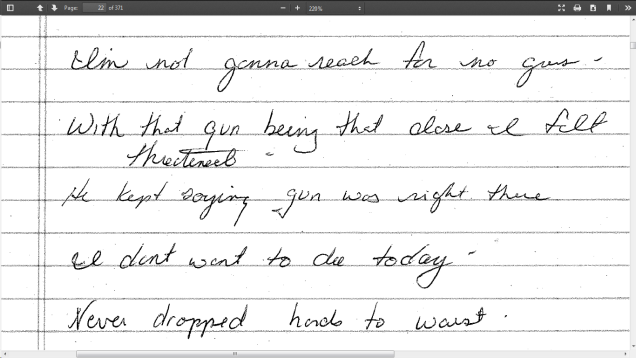 Page: 22 of 371 228%
I'm not gonna reach for no guns -
With that gun being that close I felt
threatened -
He kept saying gun was right there
I dont want to die today -
Never dropped hands to waist.